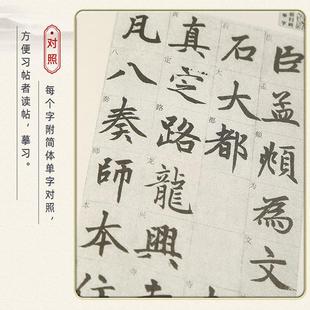 对照
每个字附简体单字对照，
方便习帖者读帖，摹习。
臣孟頫為文
石大都
真定路龍興
凡八奏師本住